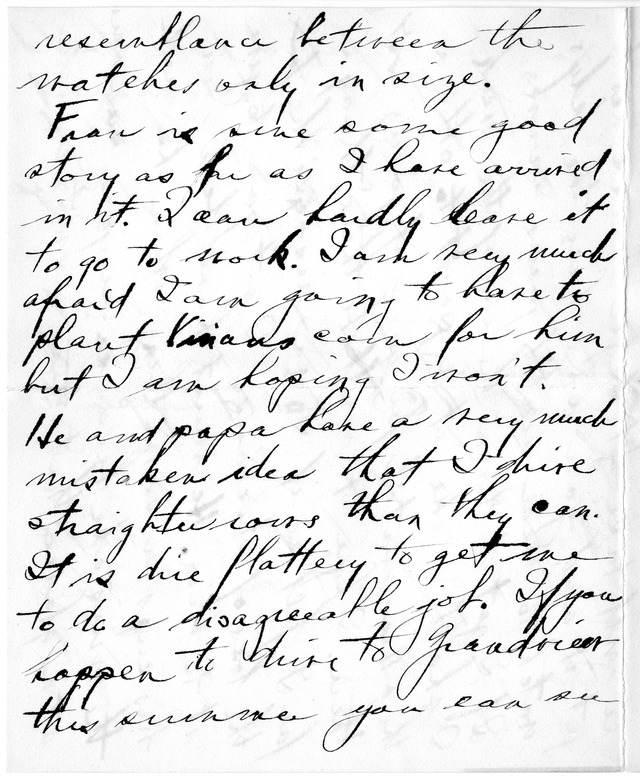 resemblance between the
watches only in size.
Fran is sure some good
story as far as I have arrived
in it. I can hardly leave it
to go to work. I am very much
afraid I am going to have to
plant Vivians corn for him
but I am hoping I won't.
He and papa have a very much
mistaken idea that I drive
straighter rows than they can.
It is dire flattery to get me
to do a disagreeable job. If you
happen to drive to Grandview
this summer you can see